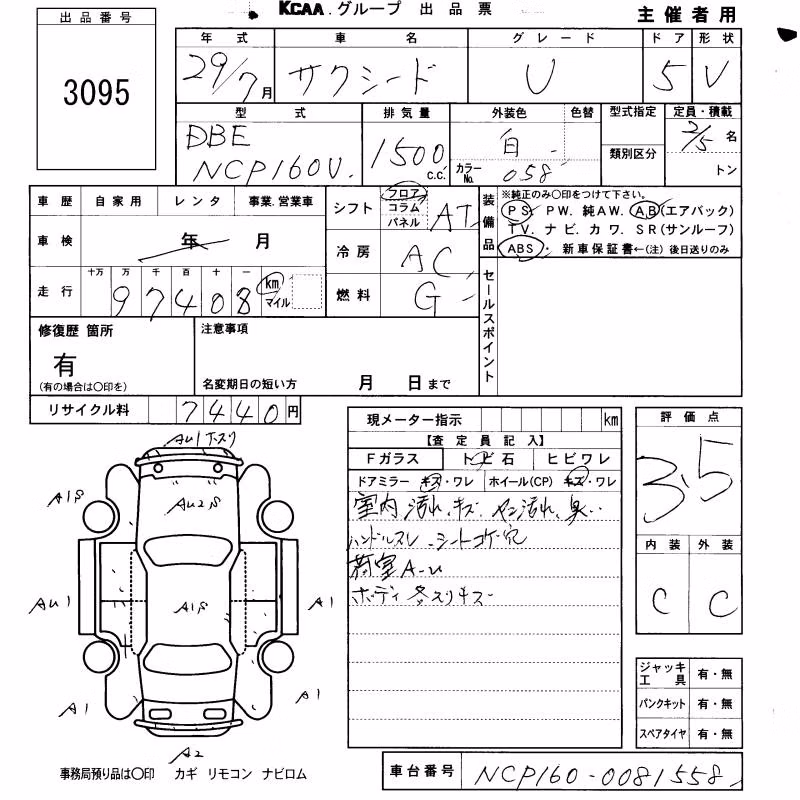 KCAA.グループ 出品票
主催者用
出品番号
3095
年式 車名 グレード ドア 形状
29/7月 サクシード U 5 V
型式 排気量 外装色 色替 型式指定 定員・積載
DBE
NCP160V. 1500c.c. 白 カラーNo. 058 類別区分 2/5名
トン
車歴 自家用 レンタ 事業.営業車
シフト フロア コラム パネル AT
装備品 ※純正のみ○印をつけて下さい。
PS. PW. 純AW. A.B(エアバック)
TV. ナビ. カワ. SR(サンルーフ)
ABS・ 新車保証書←(注) 後日送りのみ
車検 年 月
冷房 AC
走行 十万 万 千 百 十 一
97408 km マイル
燃料 G
セールスポイント
修復歴 箇所
有
(有の場合は○印を)
注意事項
名変期日の短い方 月 日まで
リサイクル料 7440円
現メーター指示 km
【査定員記入】
Fガラス トビ石 ヒビワレ
ドアミラー キズ・ワレ ホイール(CP) キズ・ワレ
室内汚れ、キズ、
ハンドルスレ、シートコゲ穴
荷室A-U
ボディ 多スリキズ
評価点
3.5
内装 外装
C C
AU1 下スリ
A1S
AU2S
AU1
A1S
A1
A1
A1
A2
ジャッキ 工具 有・無
パンクキット 有・無
スペアタイヤ 有・無
事務局預り品は○印 カギ リモコン ナビロム
車台番号 NCP160-0081558